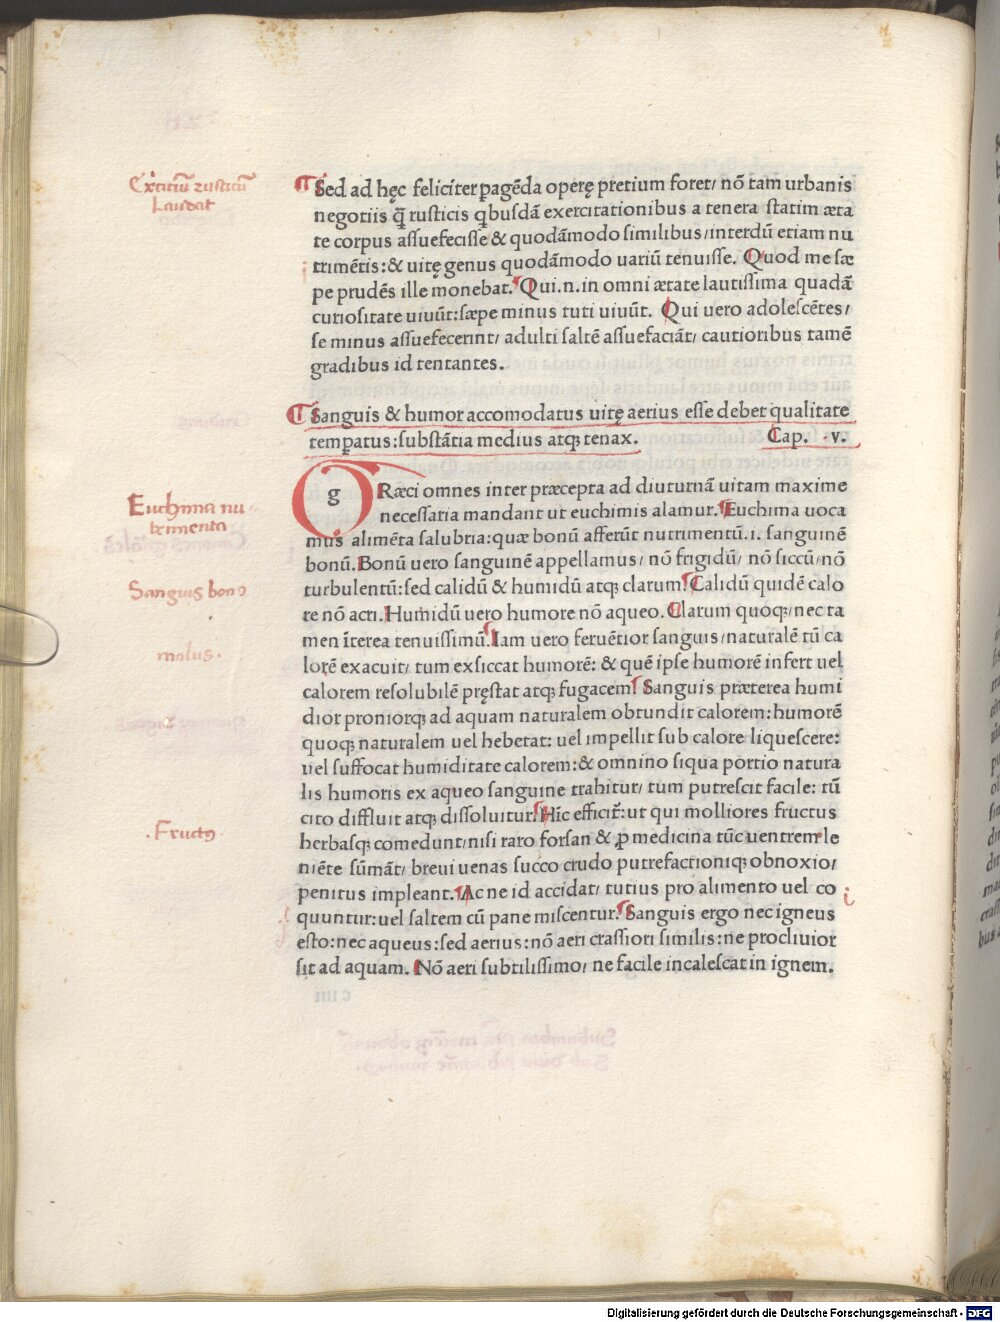 Exercitiū rusticū
Laudat
¶Sed ad hęc feliciter ꝑagēda operę pretium foret/ nō tam urbanis
negotiis q̄ rusticis qbusdā exercitationibus a tenera statim æta
te corpus assuefecisse & quodāmodo similibus/interdū etiam nu
trimētis:& uitę genus quodāmodo uariū tenuisse. Quod me sæ
pe prudēs ille monebat. Qui.n.in omni ætate lautissima quadā
curiositate uiuūt:sæpe minus tuti uiuūt. Qui uero adolescētes/
se minus assuefecerint/ adulti saltē assuefaciāt/ cautioribus tamē
gradibus id tentantes.
¶Sanguis & humor accomodatus uitę aerius esse debet qualitate
temꝑatus:substātia medius atqꝫ tenax. Cap. .v.
Euchima nu
trimenta
Sanguis bono
malus.
.Fructꝯ.
g
RÆci omnes inter præcepta ad diuturnā uitam maxime
necessaria mandant ut euchimis alamur. Euchima uoca
mus alimēta salubria:quæ bonū afferūt nutrimentū.i. sanguinē
bonū. Bonū uero sanguinē appellamus/ nō frigidū/ nō siccū/nō
turbulentū:sed calidū & humidū atqꝫ clarum. Calidū quidē calo
re nō acri. Humidū uero humore nō aqueo. Clarum quoqꝫ/nec ta
men īterea tenuissimū. Iam uero feruētior sanguis/naturalē tū ca
lorē exacuit/ tum exsiccat humorē: & quē ipse humorē infert uel
calorem resolubilē pręstat atqꝫ fugacem. Sanguis præterea humi
dior proniorqꝫ ad aquam naturalem obtundit calorem:humorē
quoqꝫ naturalem uel hebetat: uel impellit sub calore liquescere:
uel suffocat humiditate calorem:& omnino siqua portio natura
lis humoris ex aqueo sanguine trahitur/ tum putrescit facile: tū
cito diffluit atqꝫ dissoluitur. Hīc efficit̄:ut qui molliores fructus
herbasqꝫ comedunt/nisi raro forsan & ꝓ medicina tūc uentrem le
niēte sūmāt/ breui uenas succo crudo putrefactioniqꝫ obnoxio/
penitus impleant. Ac ne id accidat/ tutius pro alimento uel co
quuntur:uel saltem cū pane miscentur. Sanguis ergo nec igneus
esto:nec aqueus:sed aerius:nō aeri crassiori similis:ne procliuior
sit ad aquam. Nō aeri subtilissimo/ ne facile incalescat in ignem.
Digitalisierung gefördert durch die Deutsche Forschungsgemeinschaft - DFG